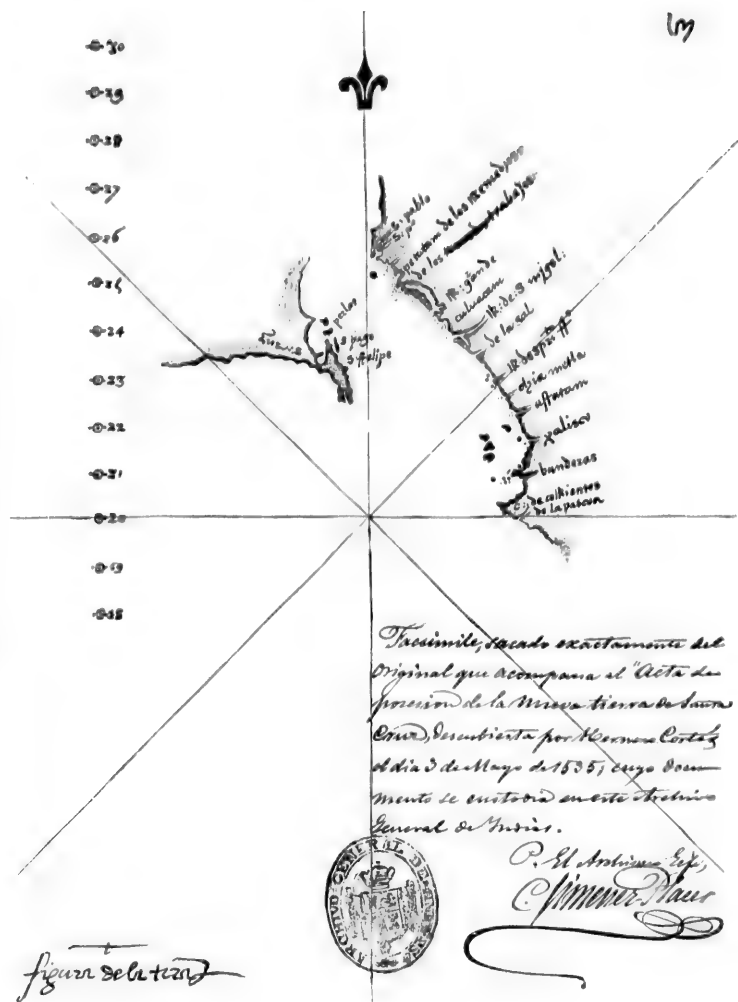 30
29
28
27
26
25
24
23
22
21
20
19
18
S. pablo
S. po
de los trabajos
R: gande
culuacam
R: de s migel:
de la sal
R de spũ sto
chia metla
astatam
xalisco
banderas
de la pascua
perlas
S tiago
S felipe
Facsimile, sacado exactamente del
original que acompaña al "Acta de
posesion de la Nueva tierra de Santa
Cruz, descubierta por Hernan Cortés
el dia 3 de Mayo de 1535; cuyo docu-
mento se custodia en este Archivo
General de Indias.
P. El Archivero Gefe,
C. Jimenez Placer
ARCHIVO GENERAL DE INDIAS
figura de la tierra